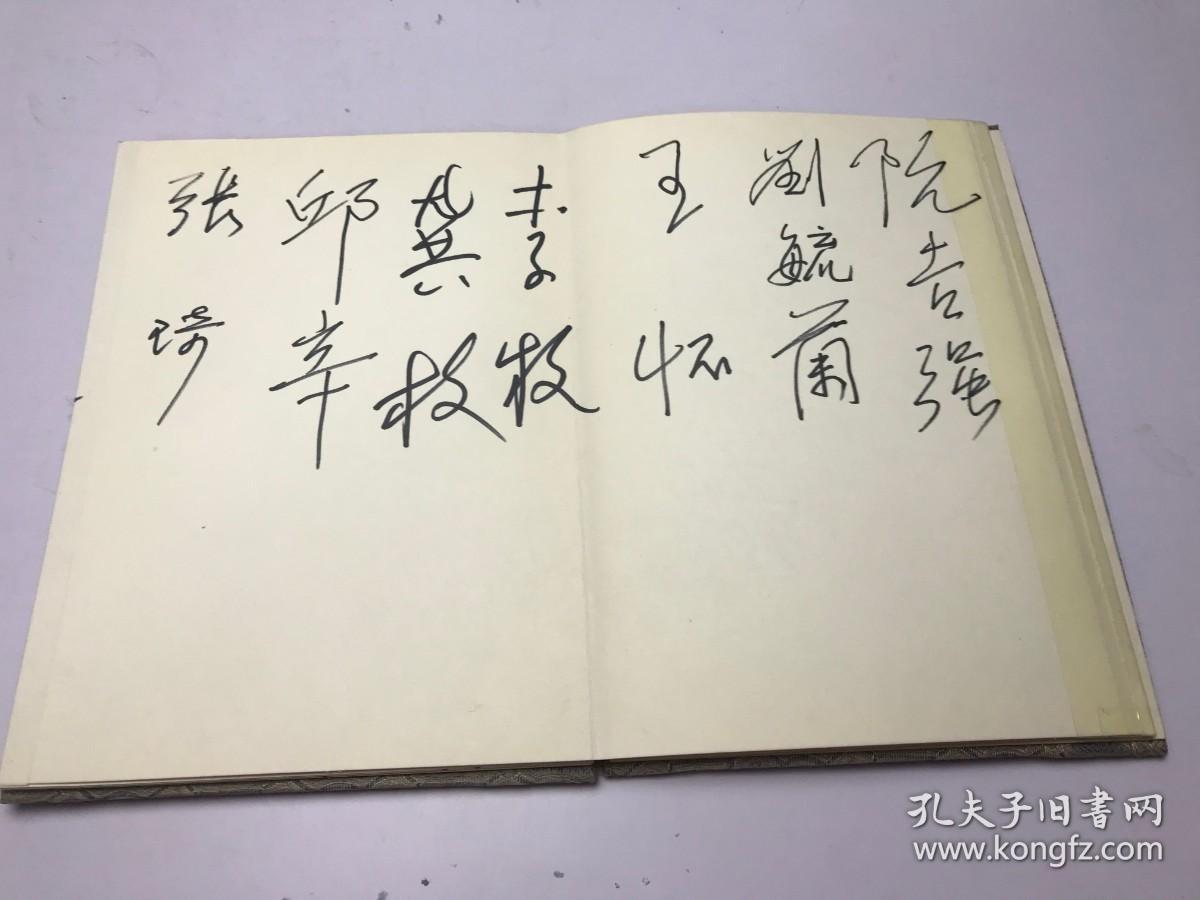 阮吉强
劉毓蘭
王怀
李枚
龔枚
邱幸
張琦
孔夫子旧书网
www.kongfz.com